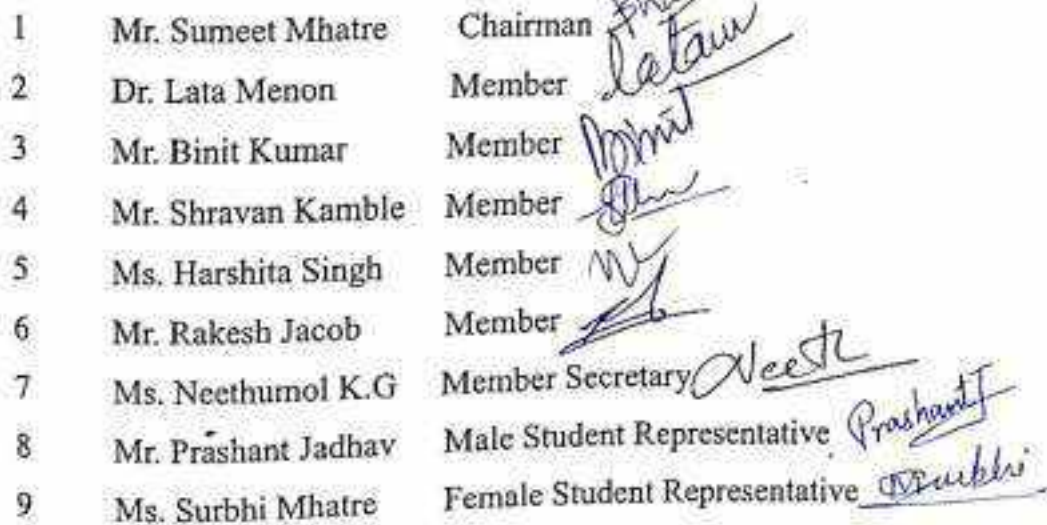 1 Mr. Sumeet Mhatre Chairman
2 Dr. Lata Menon Member Latam
3 Mr. Binit Kumar Member Binit
4 Mr. Shravan Kamble Member
5 Ms. Harshita Singh Member
6 Mr. Rakesh Jacob Member
7 Ms. Neethumol K.G Member Secretary
8 Mr. Prashant Jadhav Male Student Representative PrashantJ
9 Ms. Surbhi Mhatre Female Student Representative